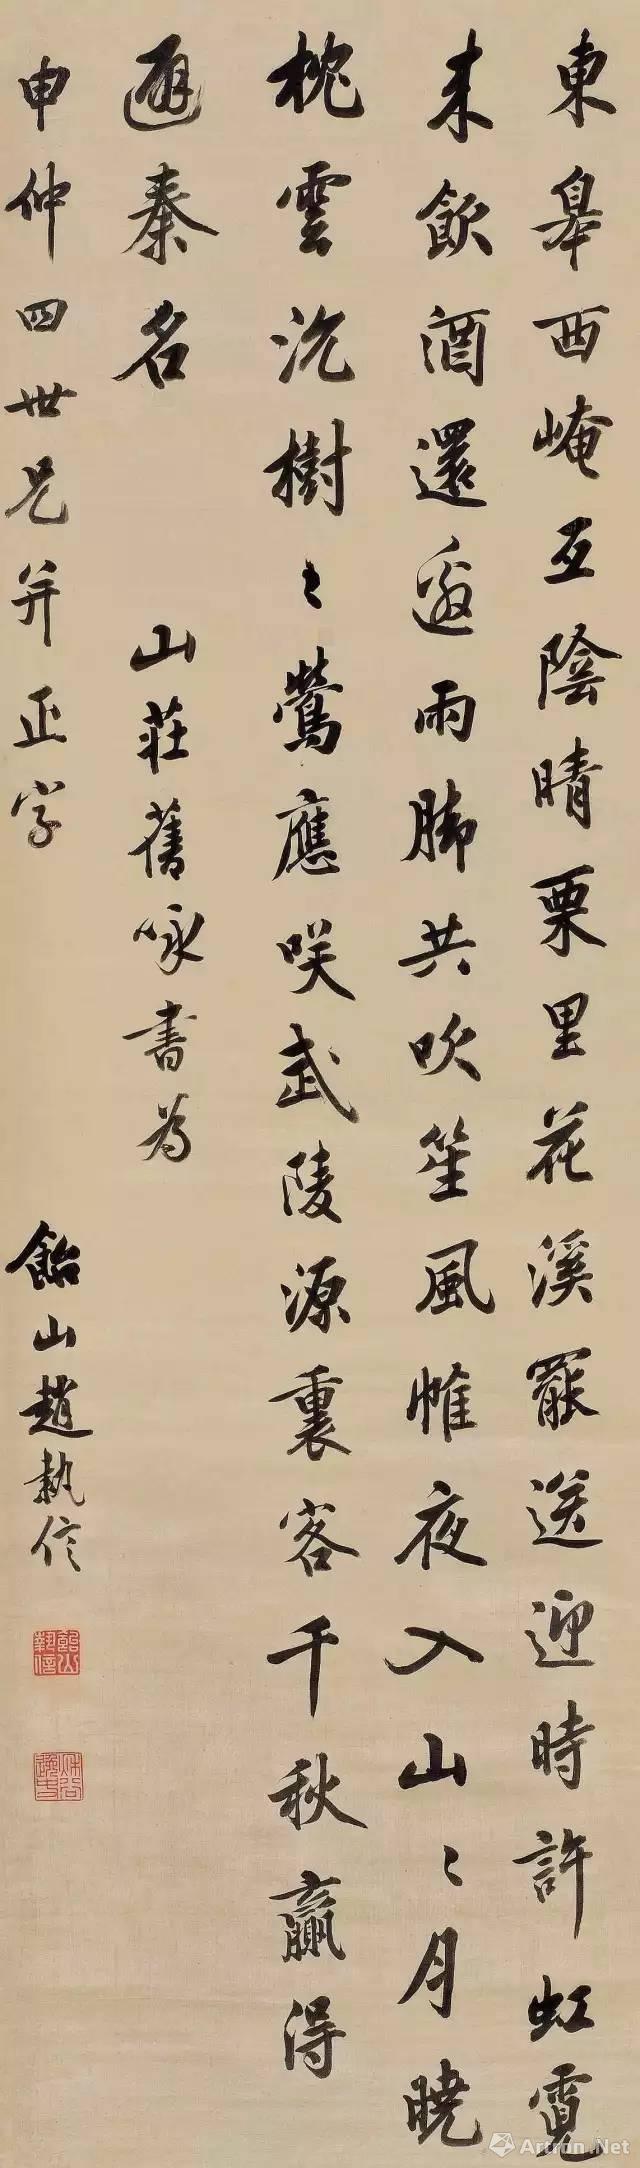 東皋西崦互陰晴栗里花溪罷送迎時許虹霓
来飲酒還邀雨腳共吹笙風帷夜入山〻月曉
枕雲沉樹〻鶯應咲武陵源裏客千秋贏得
避秦名
山莊舊咏書為
申仲四世兄并正字
飴山趙執信
飴山
執信
Artron.Net